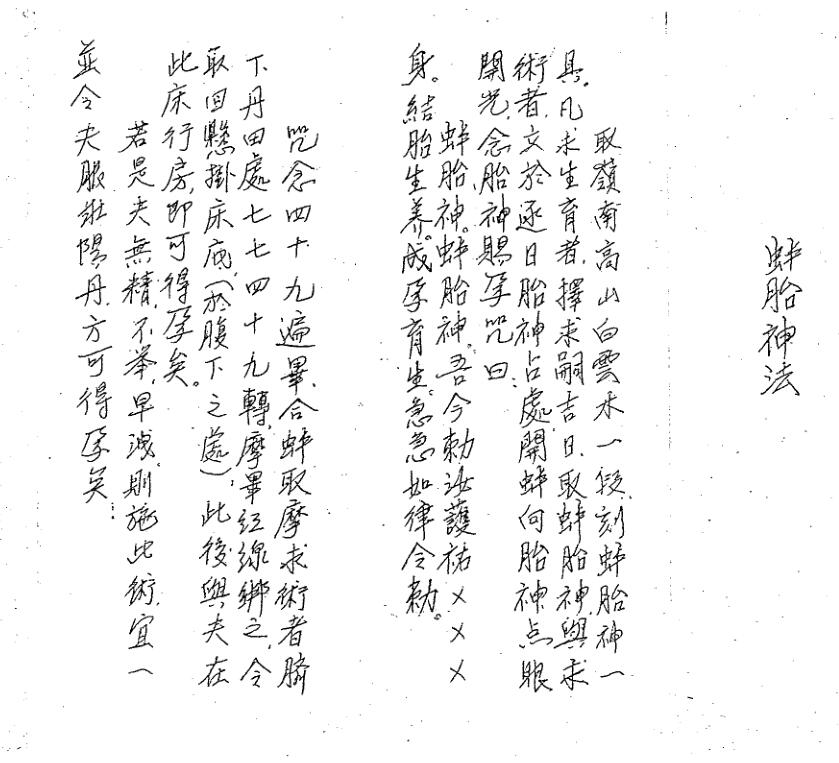 蚌胎神法
取嶺南高山白雲木一段，刻蚌胎神一
具。凡求生育者，擇求嗣吉日，取蚌胎神，與求
術者，文於逐日胎神占處，開蚌向胎神点眼
開光，念胎神賜孕咒曰：
蚌胎神。蚌胎神。吾今勅汝護祐×××
身。結胎生养。成孕育生。急急如律令勅。
咒念四十九遍畢，合蚌取摩求術者臍
下丹田處七七四十九轉，摩畢红線綁之，令
取回懸掛床底（於腹下之處），此後與夫在
此床行房，即可得孕矣。
若是夫無精，不举，早洩，則施此術，宜一
並令夫服壯陽丹，方可得孕矣